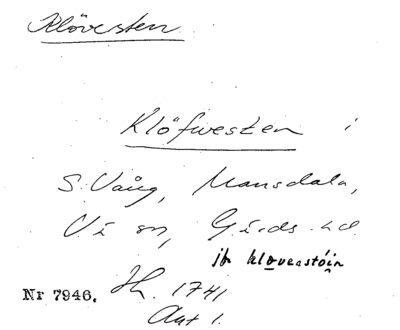 Klövesten
Klöfwesten i
S. Vång, Mansdala,
Vi sn, Guds. hd
jb klovenstöin
Nr 7946. Jh. 1741
Akt 1.